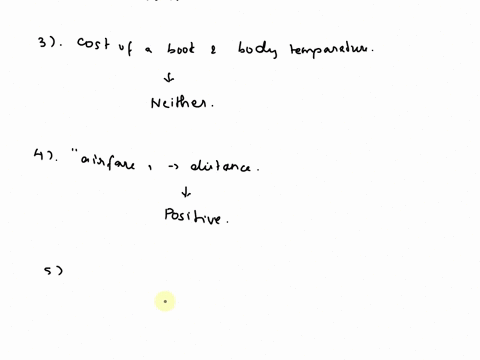 3). Cost of a book & body temparature.
↓
Neither.
4). "airfare, -> distance.
↓
Positive.
5)